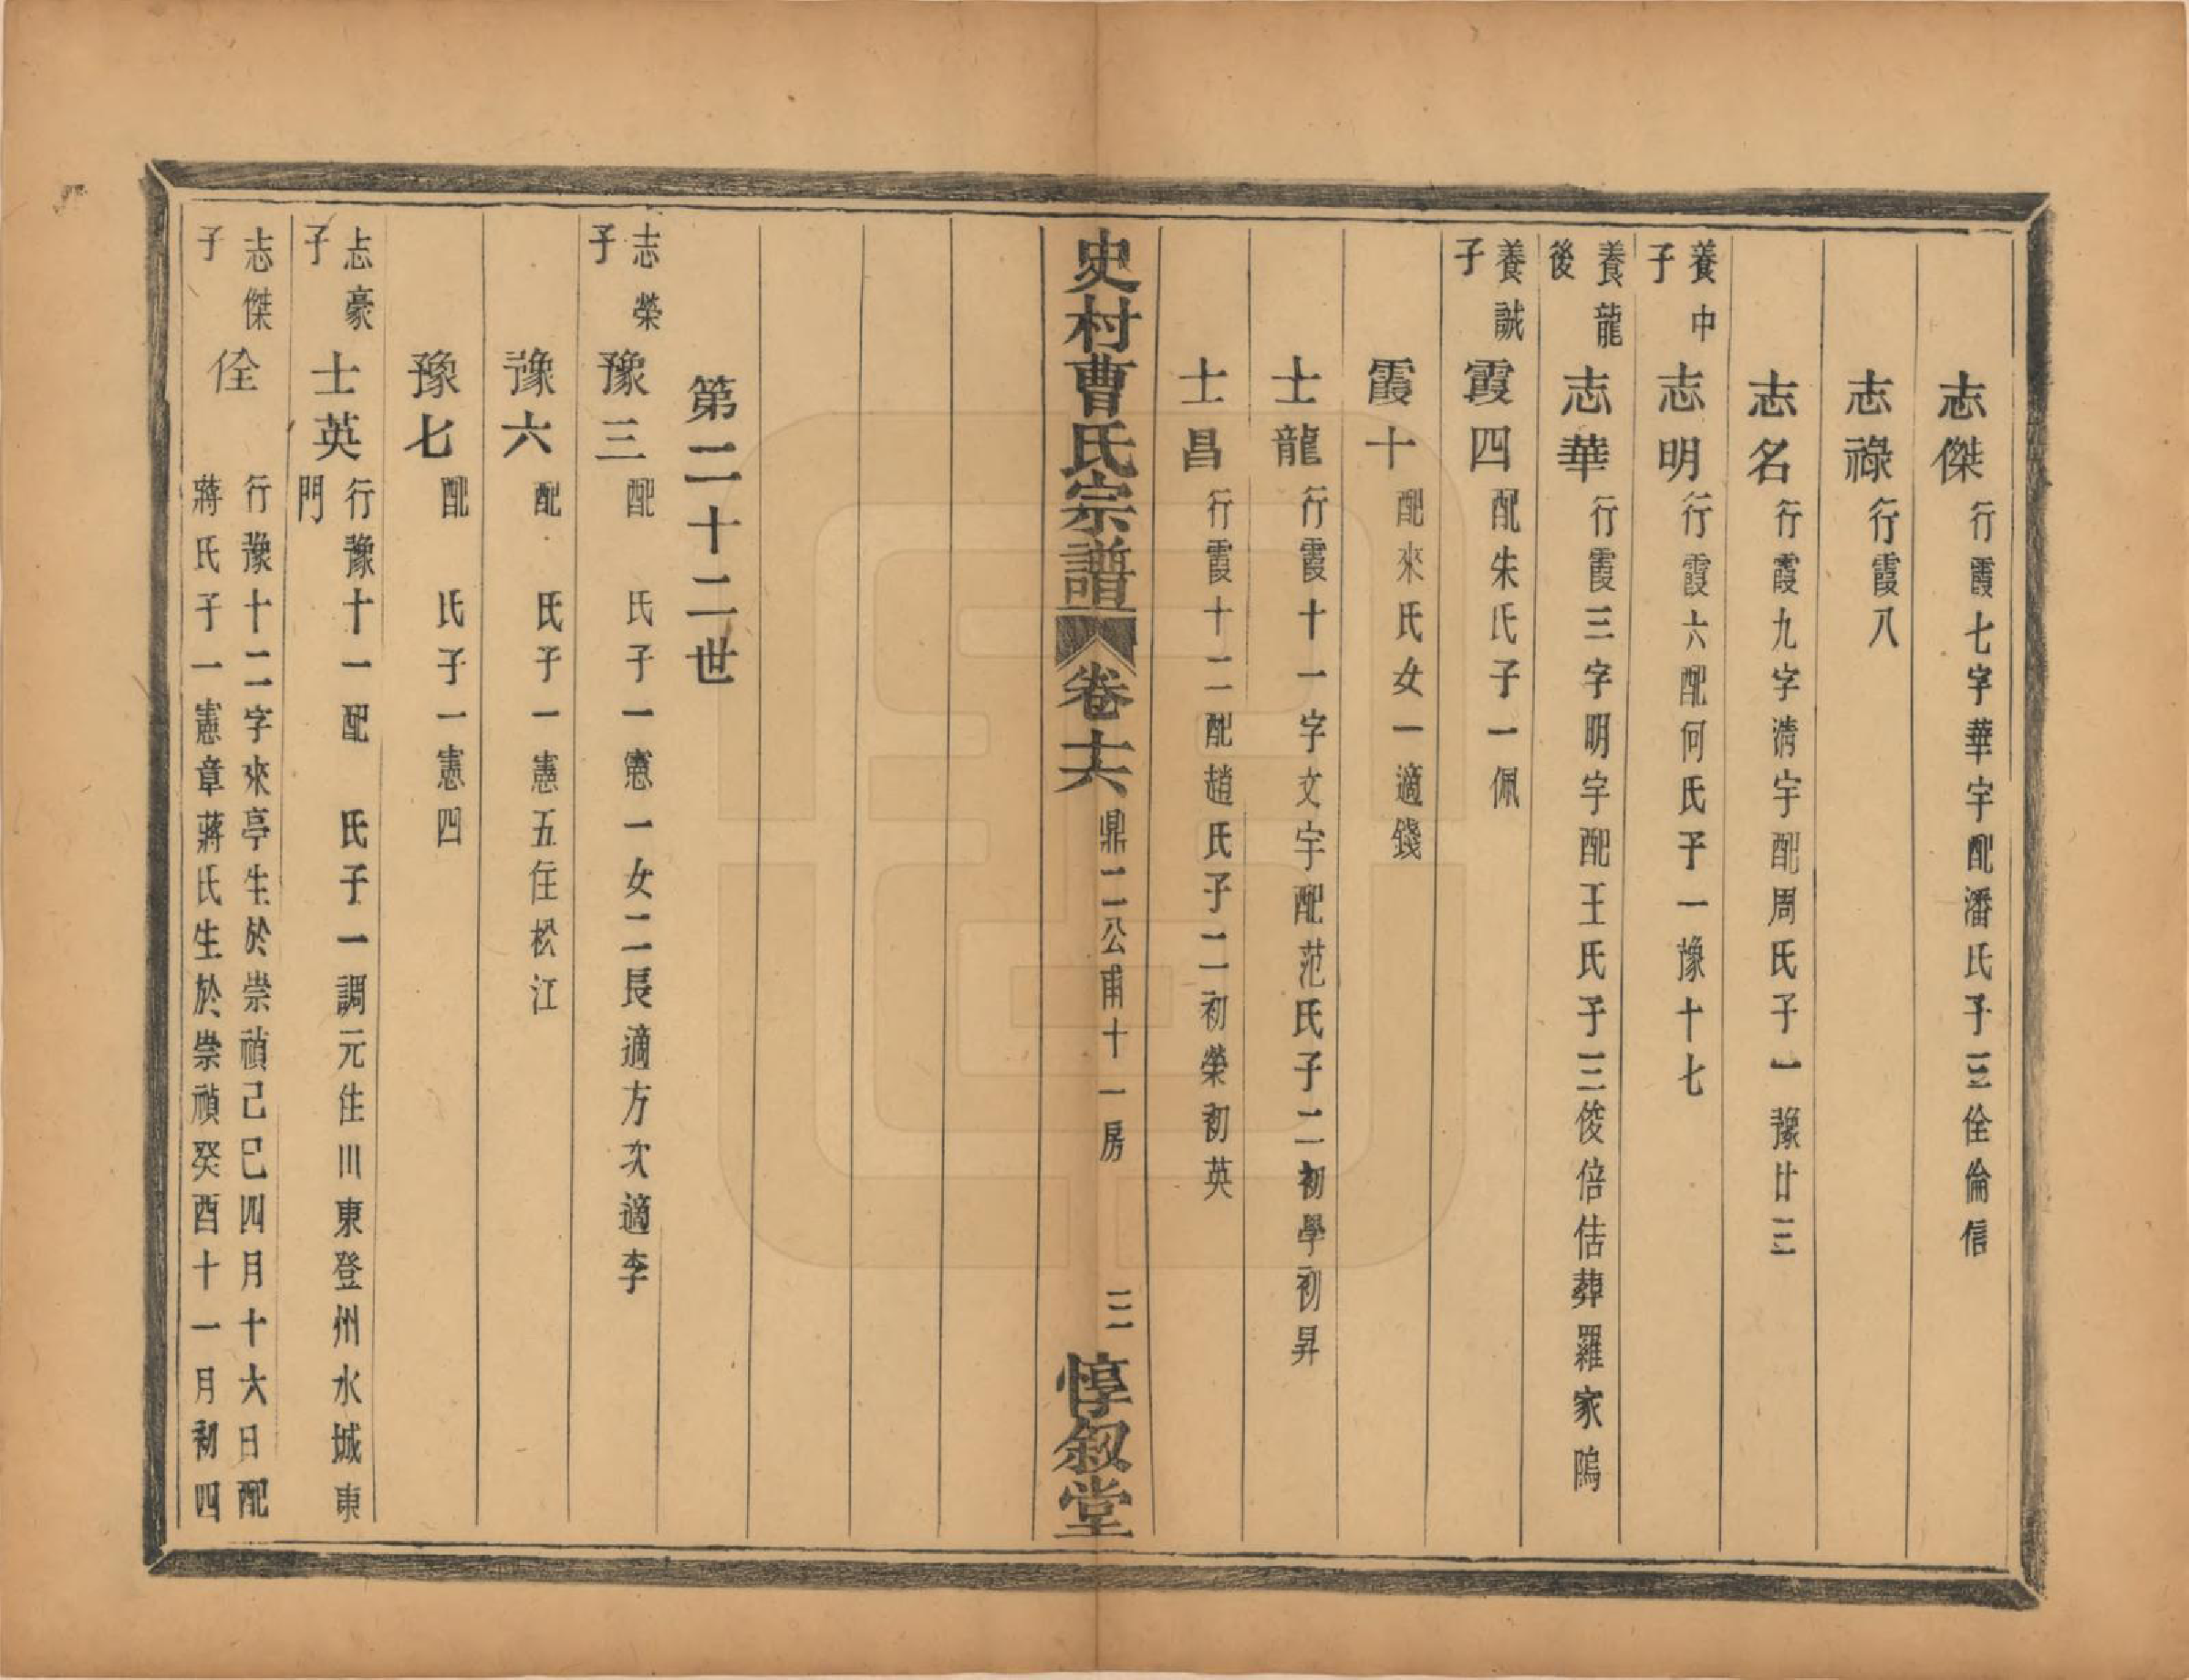 志傑 行霞七字華宇配潘氏子三佺倫信
志祿 行霞八
志名 行霞九字清宇配周氏子一豫廿三
養中子 志明 行霞六配何氏子一豫十七
養龍後 志華 行霞三字明宇配王氏子三俊倍佶葬羅家隖
養誠子 霞四 配朱氏子一佩
霞十 配來氏女一適錢
士龍 行霞十一字文宇配范氏子二初學初昇
士昌 行霞十二配趙氏子二初榮初英
史村曹氏宗譜 卷十六 鼎二公甫十一房 三 惇叙堂
第二十二世
志榮子 豫三 配 氏子一憲一女二長適方次適李
豫六 配 氏子一憲五住松江
豫七 配 氏子一憲四
志豪子 士英 行豫十一配 氏子一調元住川東登州水城東
門
志傑子 佺 行豫十二字來亭生於崇禎己巳四月十六日配
蔣氏子一憲章蔣氏生於崇禎癸酉十一月初四